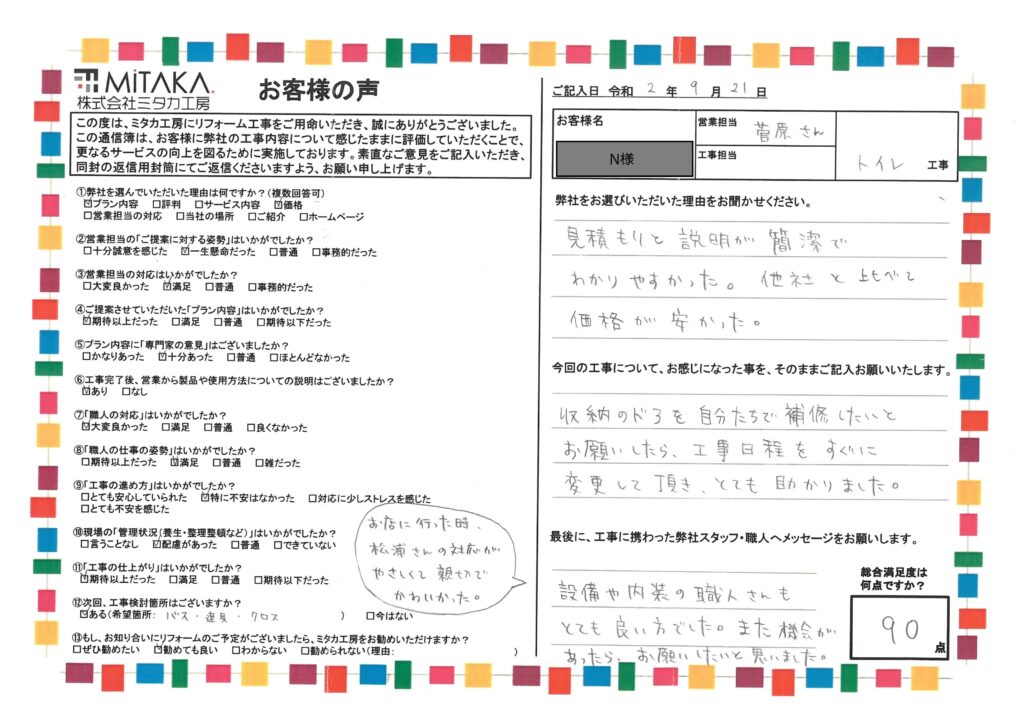 MiTAKA
株式会社ミタカ工房
お客様の声
この度は、ミタカ工房にリフォーム工事をご用命いただき、誠にありがとうございました。
この通信簿は、お客様に弊社の工事内容について感じたままに評価していただくことで、
更なるサービスの向上を図るために実施しております。素直なご意見をご記入いただき、
同封の返信用封筒にてご返信くださいますよう、お願い申し上げます。
①弊社を選んでいただいた理由は何ですか?(複数回答可)
☑プラン内容 □評判 □サービス内容 ☑価格
□営業担当の対応 □当社の場所 □ご紹介 □ホームページ
②営業担当の「ご提案に対する姿勢」はいかがでしたか?
□十分誠意を感じた ☑一生懸命だった □普通 □事務的だった
③営業担当の対応はいかがでしたか?
□大変良かった ☑満足 □普通 □事務的だった
④ご提案させていただいた「プラン内容」はいかがでしたか?
☑期待以上だった □満足 □普通 □期待以下だった
⑤プラン内容に「専門家の意見」はございましたか?
□かなりあった ☑十分あった □普通 □ほとんどなかった
⑥工事完了後、営業から製品や使用方法についての説明はございましたか?
☑あり □なし
⑦「職人の対応」はいかがでしたか?
☑大変良かった □満足 □普通 □良くなかった
⑧「職人の仕事の姿勢」はいかがでしたか?
□期待以上だった ☑満足 □普通 □雑だった
⑨「工事の進め方」はいかがでしたか?
□とても安心していられた ☑特に不安はなかった □対応に少しストレスを感じた
□とても不安を感じた
⑩現場の「管理状況(養生・整理整頓など)」はいかがでしたか?
□言うことなし ☑配慮があった □普通 □できていない
⑪「工事の仕上がり」はいかがでしたか?
☑期待以上だった □満足 □普通 □期待以下だった
⑫次回、工事検討箇所はございますか?
☑ある(希望箇所: バス・建具・クロス ) □今はない
⑬もし、お知り合いにリフォームのご予定がございましたら、ミタカ工房をお勧めいただけますか?
□ぜひ勧めたい ☑勧めても良い □わからない □勧められない(理由: )
お店に行った時、
松浦さんの対応が
やさしくて親切で
かわいかった。
ご記入日 令和 2 年 9 月 21 日
お客様名
N様
営業担当 菅原さん
工事担当
トイレ 工事
弊社をお選びいただいた理由をお聞かせください。
見積もりと説明が簡潔で
わかりやすかった。他社と比べて
価格が安かった。
今回の工事について、お感じになった事を、そのままご記入お願いいたします。
収納のドアを自分たちで補修したいと
お願いしたら、工事日程をすぐに
変更して頂き、とても助かりました。
最後に、工事に携わった弊社スタッフ・職人へメッセージをお願いします。
設備や内装の職人さんも
とても良い方でした。また機会が
あったら、お願いしたいと思いました。
総合満足度は
何点ですか?
90
点